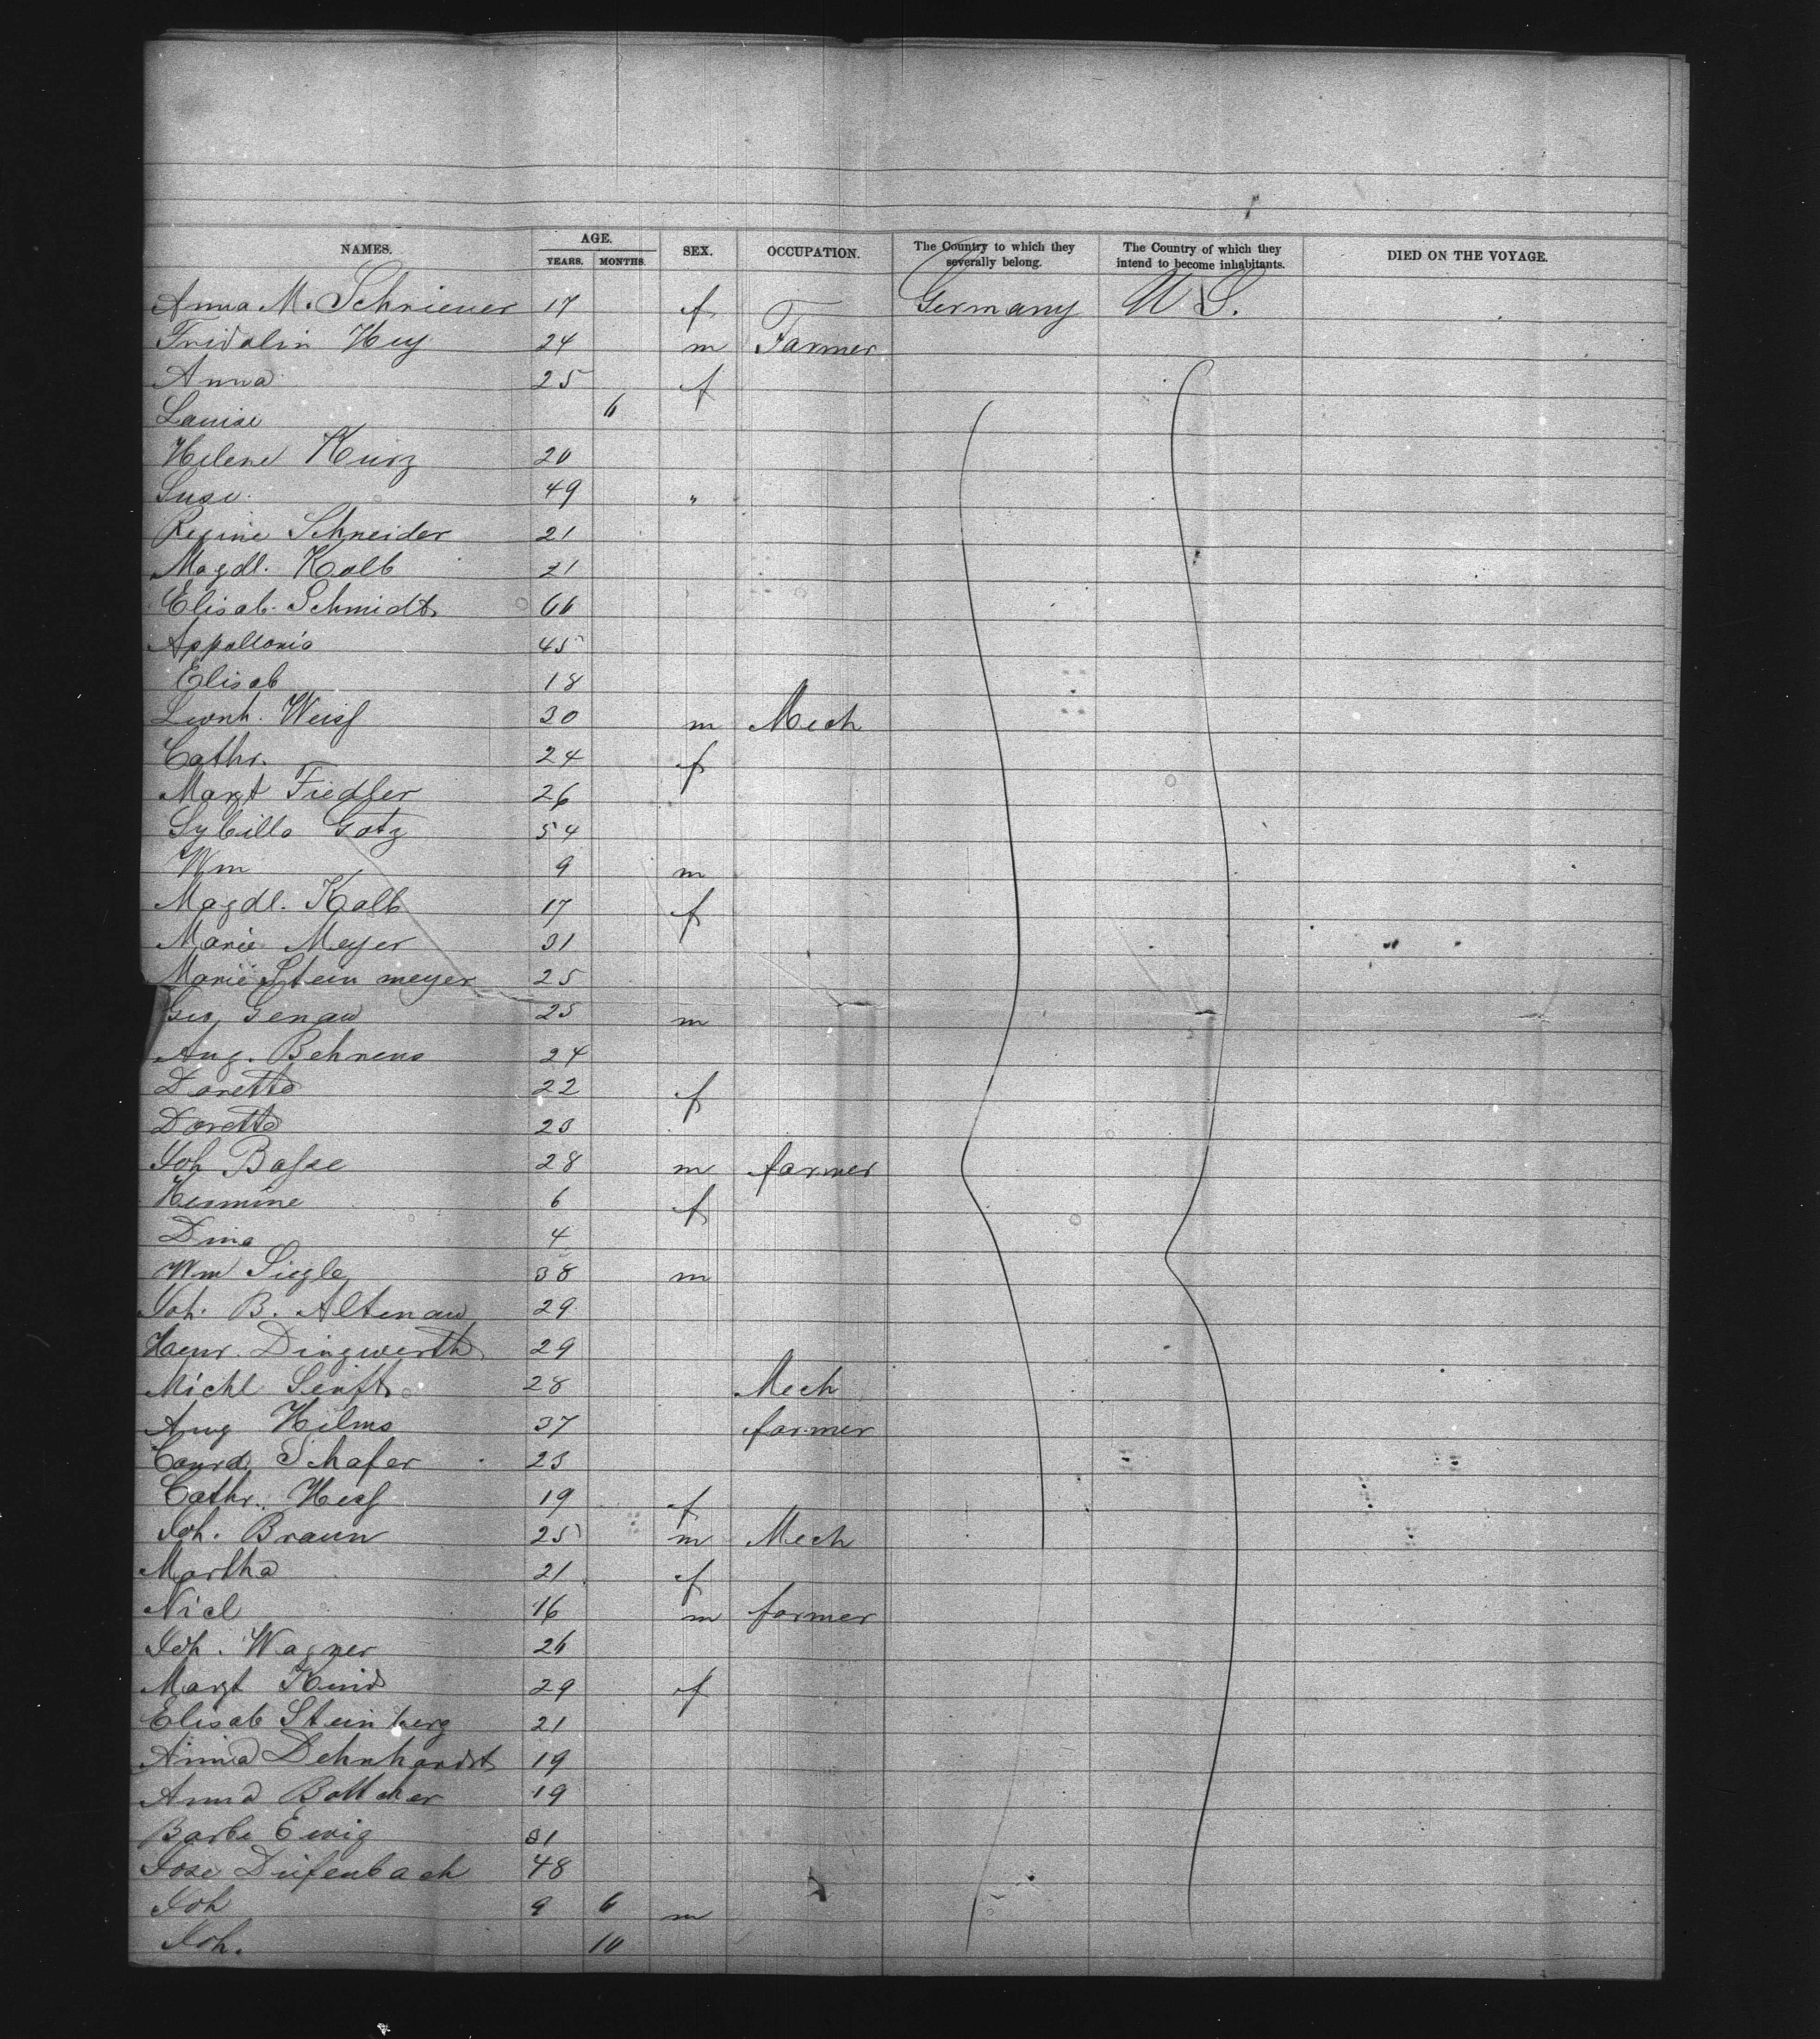 NAMES. AGE. YEARS. MONTHS. SEX. OCCUPATION. The Country to which they severally belong. The Country of which they intend to become inhabitants. DIED ON THE VOYAGE.
Anna M. Schriever 17 f Germany U S.
Fridolin Hey 24 m Farmer
Anna 25 f
Louise 6
Helene Kurz 20
Suse 49 "
Regine Schneider 21
Magdl. Kolb 21
Elisab. Schmidt 66
Appollonia 45
Elisab 18
Leonh. Weiss 30 m Mech
Cathr. 24 f
Margt Fiedler 26
Sybilla Gotz 54
Wm 9 m
Magdl. Kalb 17 f
Marie Meyer 31
Marie Steinmeyer 25
Geo, Genau 25 m
Aug. Behrens 24
Doretta 22 f
Doretta 23
Joh Basse 28 m farmer
Hermine 6 f
Dina 4
Wm Siegle 38 m
Joh. B. Altenau 29
Heinr. Dingwerth 29
Michl Senft 28 Mech
Aug Hilms 37 farmer
Conrd. Schafer 23
Cathr. Hess 19 f
Joh. Braun 25 m Mech
Martha 21 f
Nicl 16 m farmer
Joh. Wagner 26
Margt 29 f
Elisab Steinberg 21
Anna Dehnhardt 19
Anna Bottcher 19
Barbe Ewig 31
Jose Diefenbach 48
Joh 9 6 m
Joh. 10